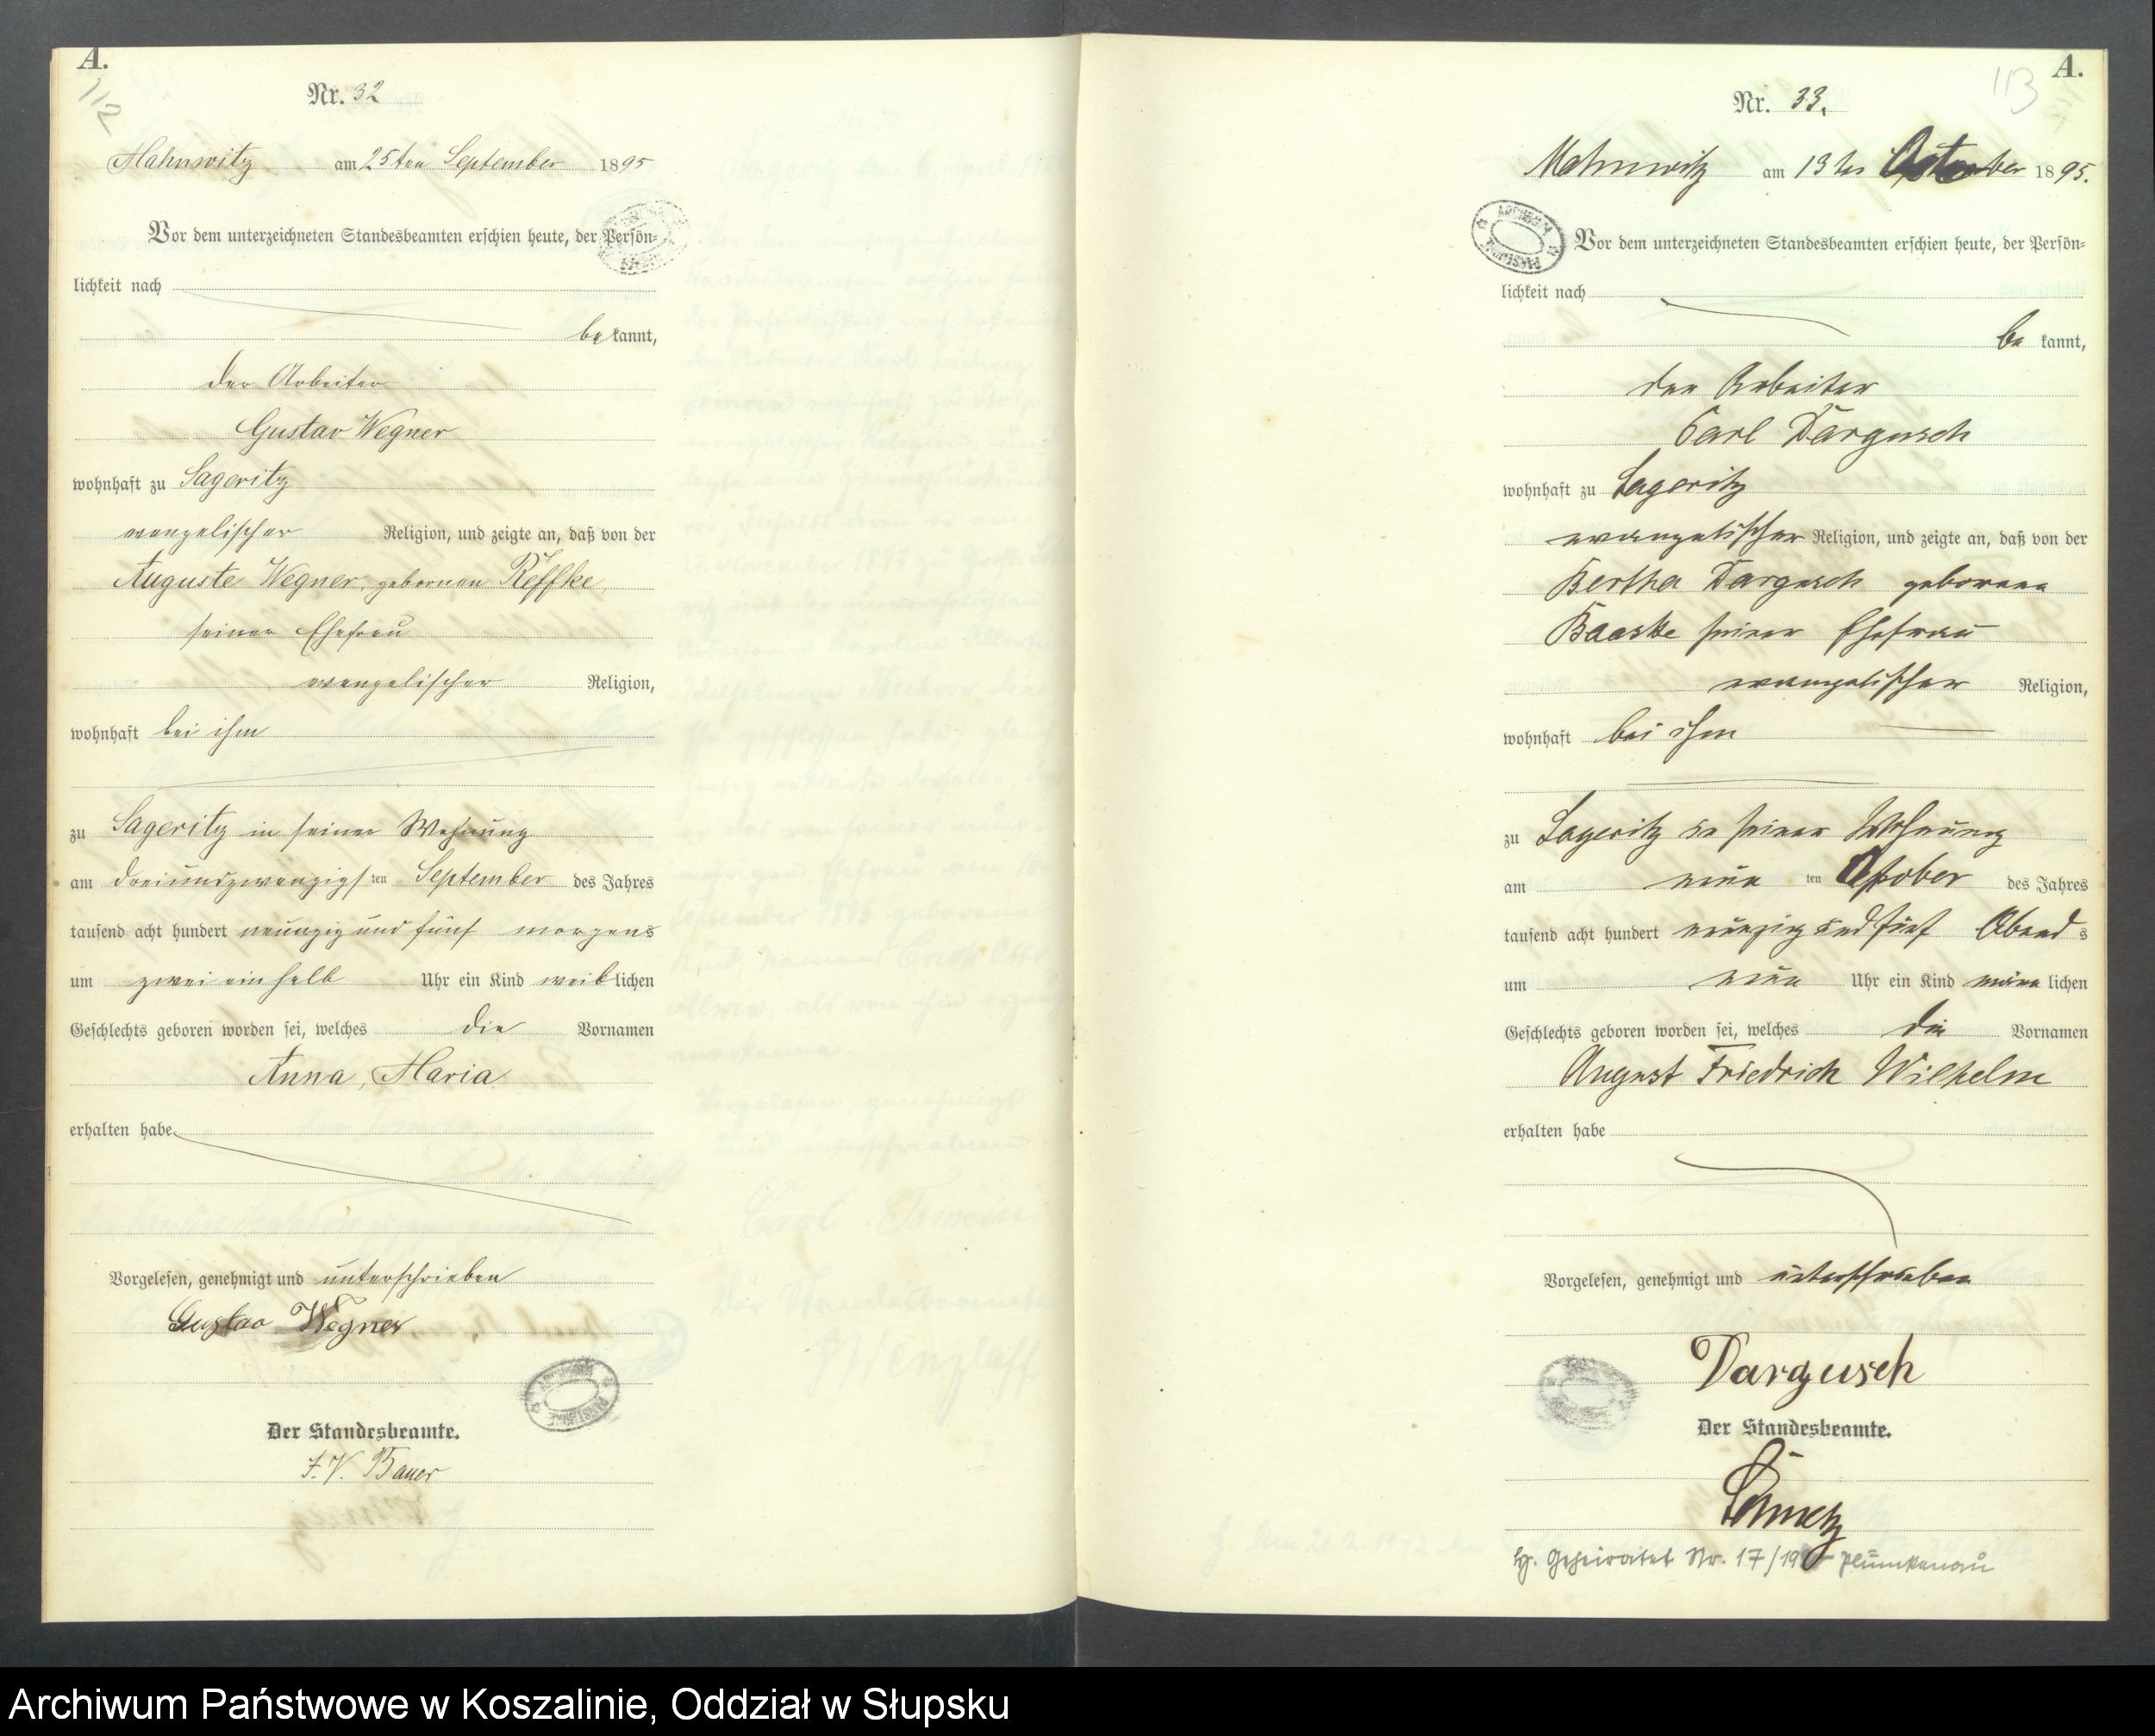 A.
112
Nr. 32
Mahnwitz am 25ten September 1895
Vor dem unterzeichneten Standesbeamten erschien heute, der Persön-
lichkeit nach
bekannt,
der Arbeiter
Gustav Wegner
wohnhaft zu Sageritz
evangelischer Religion, und zeigte an, daß von der
Auguste Wegner, geborenen Reffke,
seiner Ehefrau
evangelischer Religion,
wohnhaft bei ihm
zu Sageritz in seiner Wohnung
am dreiundzwanzigsten September des Jahres
tausend acht hundert neunzig und fünf morgens
um zwei einhalb Uhr ein Kind weiblichen
Geschlechts geboren worden sei, welches die Vornamen
Anna, Maria
erhalten habe
Vorgelesen, genehmigt und unterschrieben
Gustav Wegner
Der Standesbeamte.
J. V. Bauer
A.
113
Nr. 33.
Mahnwitz am 13ten October 1895.
Vor dem unterzeichneten Standesbeamten erschien heute, der Persön-
lichkeit nach
be kannt,
der Arbeiter
Carl Dargusch
wohnhaft zu Sageritz
evangelischer Religion, und zeigte an, daß von der
Bertha Dargusch geborene
Baaske seiner Ehefrau
evangelischer Religion,
wohnhaft bei ihm
zu Sageritz in seiner Wohnung
am neun ten October des Jahres
tausend acht hundert neunzig und fünf Abends
um neun Uhr ein Kind männlichen
Geschlechts geboren worden sei, welches die Vornamen
August Friedrich Wilhelm
erhalten habe
Vorgelesen, genehmigt und unterschrieben
Dargusch
Der Standesbeamte.
Geheiratet Nr. 17/19
Archiwum Państwowe w Koszalinie, Oddział w Słupsku